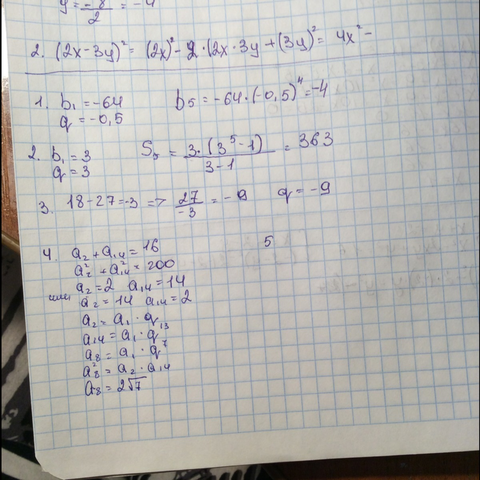 y = -8/2 = -4
2. (2x-3y)² = (2x)² - 2·(2x·3y + (3y)² = 4x² -
1. b₁ = -64 b₅ = -64·(-0,5)⁴ = -4
q = -0,5
2. b₁ = 3 S₅ = 3·(3⁵-1)/3-1 = 363
q = 3
3. 18-27=-3 => 27/-3 = -9 q = -9
4. a₂ + a₁₄ = 16 5
a₂² + a₁₄² = 200
a₂ = 2 a₁₄ = 14
или a₂ = 14 a₁₄ = 2
a₂ = a₁ · q
a₁₄ = a₁ · q¹³
a₈ = a₁ · q⁷
a₈² = a₂ · a₁₄
a₈ = 2√7